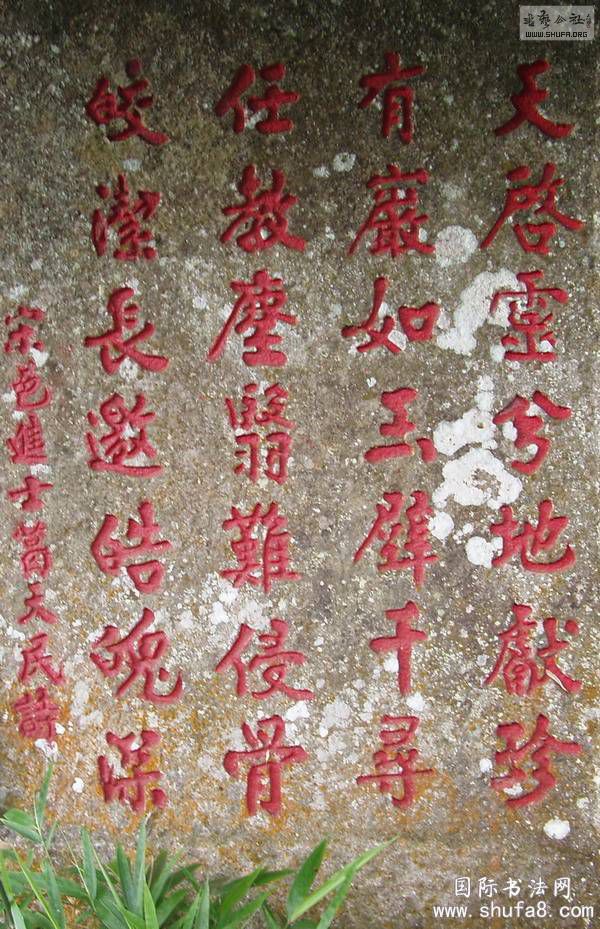 天啓靈兮地獻珍
有巖如玉壁千尋
任教塵翳難侵骨
皎潔長邀皓魄深
宋邑進士葛天民詩
WWW.SHUFA.ORG
国际书法网
www.shufa8.com